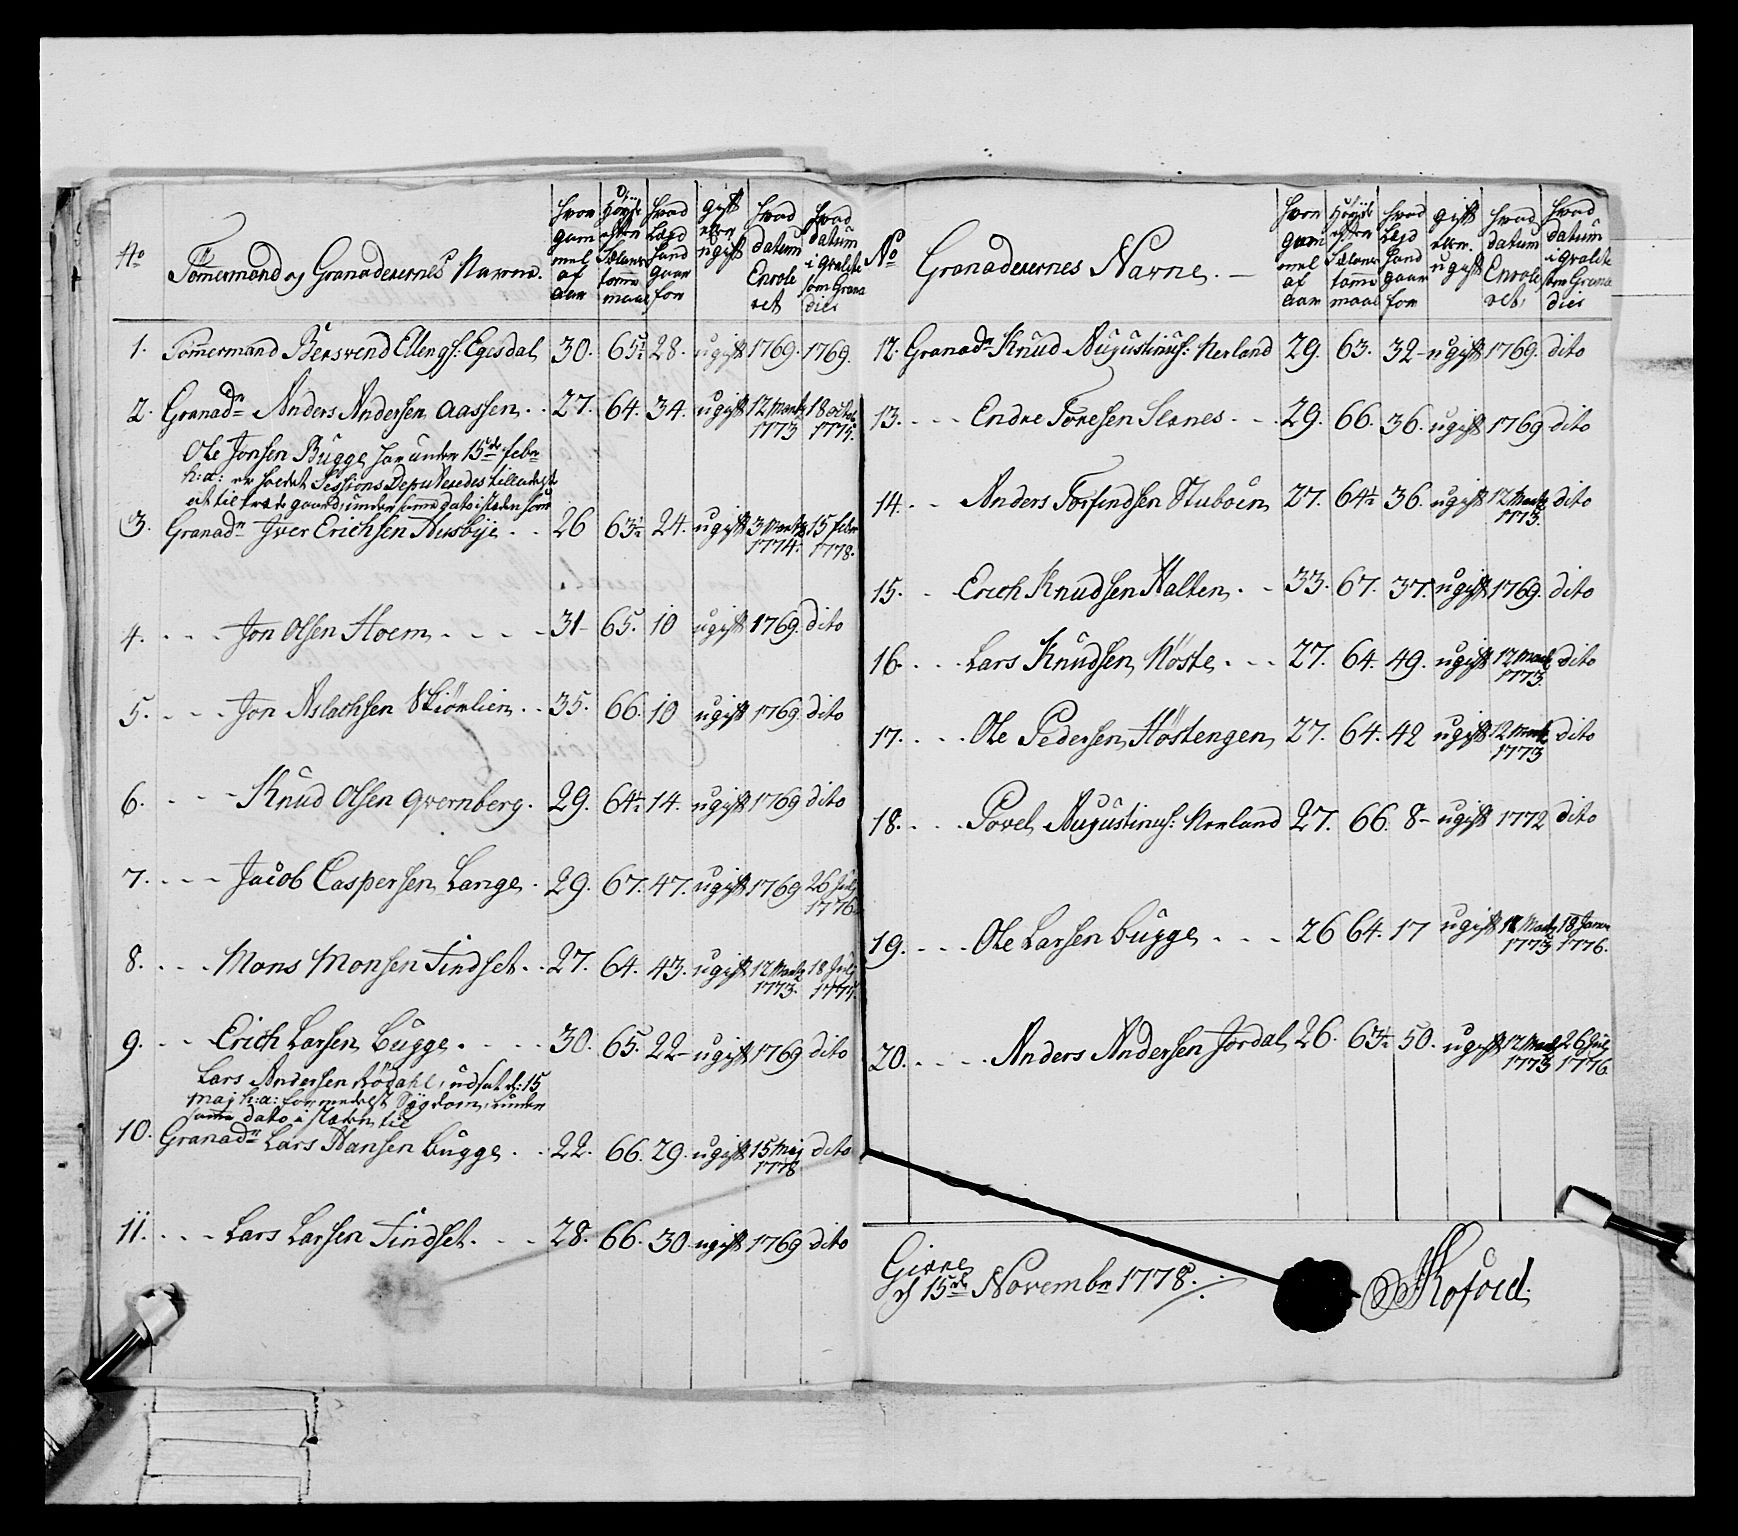 No
Tömermand og Granaderernes Navne.
hvor gammel af aar
Höyde efter Sælanz tomme maal
hvad Lægd hand gaar for
gift eller ugift
hvad datum Enrolleret
hvad datum i qvalite som Granadier
1. Tömermand Bersvend Ellengs: Egesdal 30. 65½ 28. ugift 1769. 1769.
2. Granadr Anders Andersen Aassen. 27. 64. 34. ugift 12 Martz 1773 18 octob 1775.
Ole Jonsen Bugge har under 15de febr
h: a: er holdet Sessions Deputeredes tilladelse
at tiltræde gaard, under samme dato i stæden som
3. Granadr Iver Erichsen Husbye 26 63½ 24. ugift 3 Martz 1774. 15 febr 1778.
4. Jon Olsen Hoem 31 65. 10 ugift 1769. dito
5. Jon Aslachsen Skiörlien 35. 66. 10 ugift 1769. dito
6. Knud Olsen Qvernberg. 29. 64½ 14. ugift 1769 dito
7. Jacob Caspersen Lange. 29. 67. 47. ugift 1769 26 July 1776.
8. Mons Monsen Tindset. 27. 64. 43. ugift 12 Martz 1773. 18 July 1775.
9. Erich Larsen Bugge. 30. 65. 22 ugift 1769 dito
Lars Andersen Rödahl, udsat d: 15
Maj h: a: formedelst Sygdom, under
samme dato i stæden til
10. Granadr Lars Hansen Bugge 22. 66. 29. ugift 15 Maj 1778 dito
11. Lars Larsen Tindset. 28. 66. 30 ugift 1769 dito
No
Granaderernes Navne.
hvor gammel af aar
Höyde efter Sælanz tomme maal
hvad Lægd hand gaar for
gift eller ugift
hvad datum Enrolleret
hvad datum i qvalite som Granadier
12. Granadr Knud Augustinus: Nerland 29. 63. 32 ugift 1769. dito
13. Endre Toresen Slenes 29. 66. 36. ugift 1769 dito
14. Anders Torfindsen Stuboen 27. 64½ 36. ugift 12 Martz 1773. dito
15. Erich Knudsen Halten. 33. 67. 37. ugift 1769. dito
16. Lars Knudsen Höste. 27. 64. 49. ugift 12 Martz 1773. dito
17. Ole Pedersen Höstengen 27. 64. 42 ugift 12 Martz 1773 dito
18. Povel Augustinus: Nerland 27. 66. 8 ugift 1772 dito
19. Ole Larsen Bugge 26 64. 17 ugift 12 Martz 1773 18 Janv 1776.
20. Anders Andersen Jordal 26. 63½ 50. ugift 12 Martz 1773 26 Jul 1776.
Giære
d 15de Novembr 1778.
Kofoed.